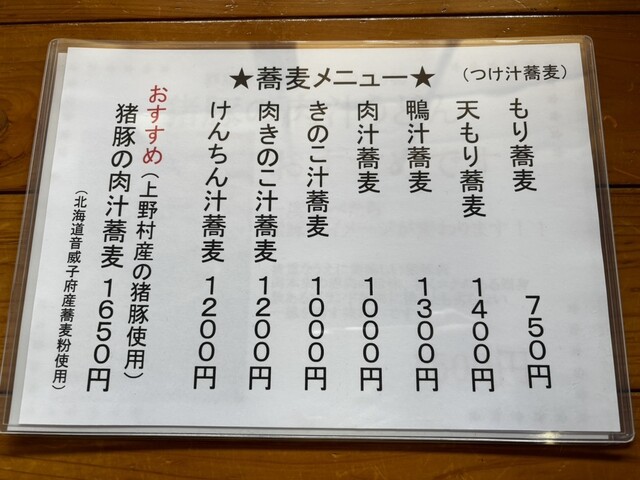 ★蕎麦メニュー★
（つけ汁蕎麦）
もり蕎麦 750円
天もり蕎麦 1400円
鴨汁蕎麦 1300円
肉汁蕎麦 1000円
きのこ汁蕎麦 1000円
肉きのこ汁蕎麦 1200円
けんちん汁蕎麦 1200円
おすすめ（上野村産の猪豚使用）
猪豚の肉汁蕎麦 1650円
（北海道音威子府産蕎麦粉使用）